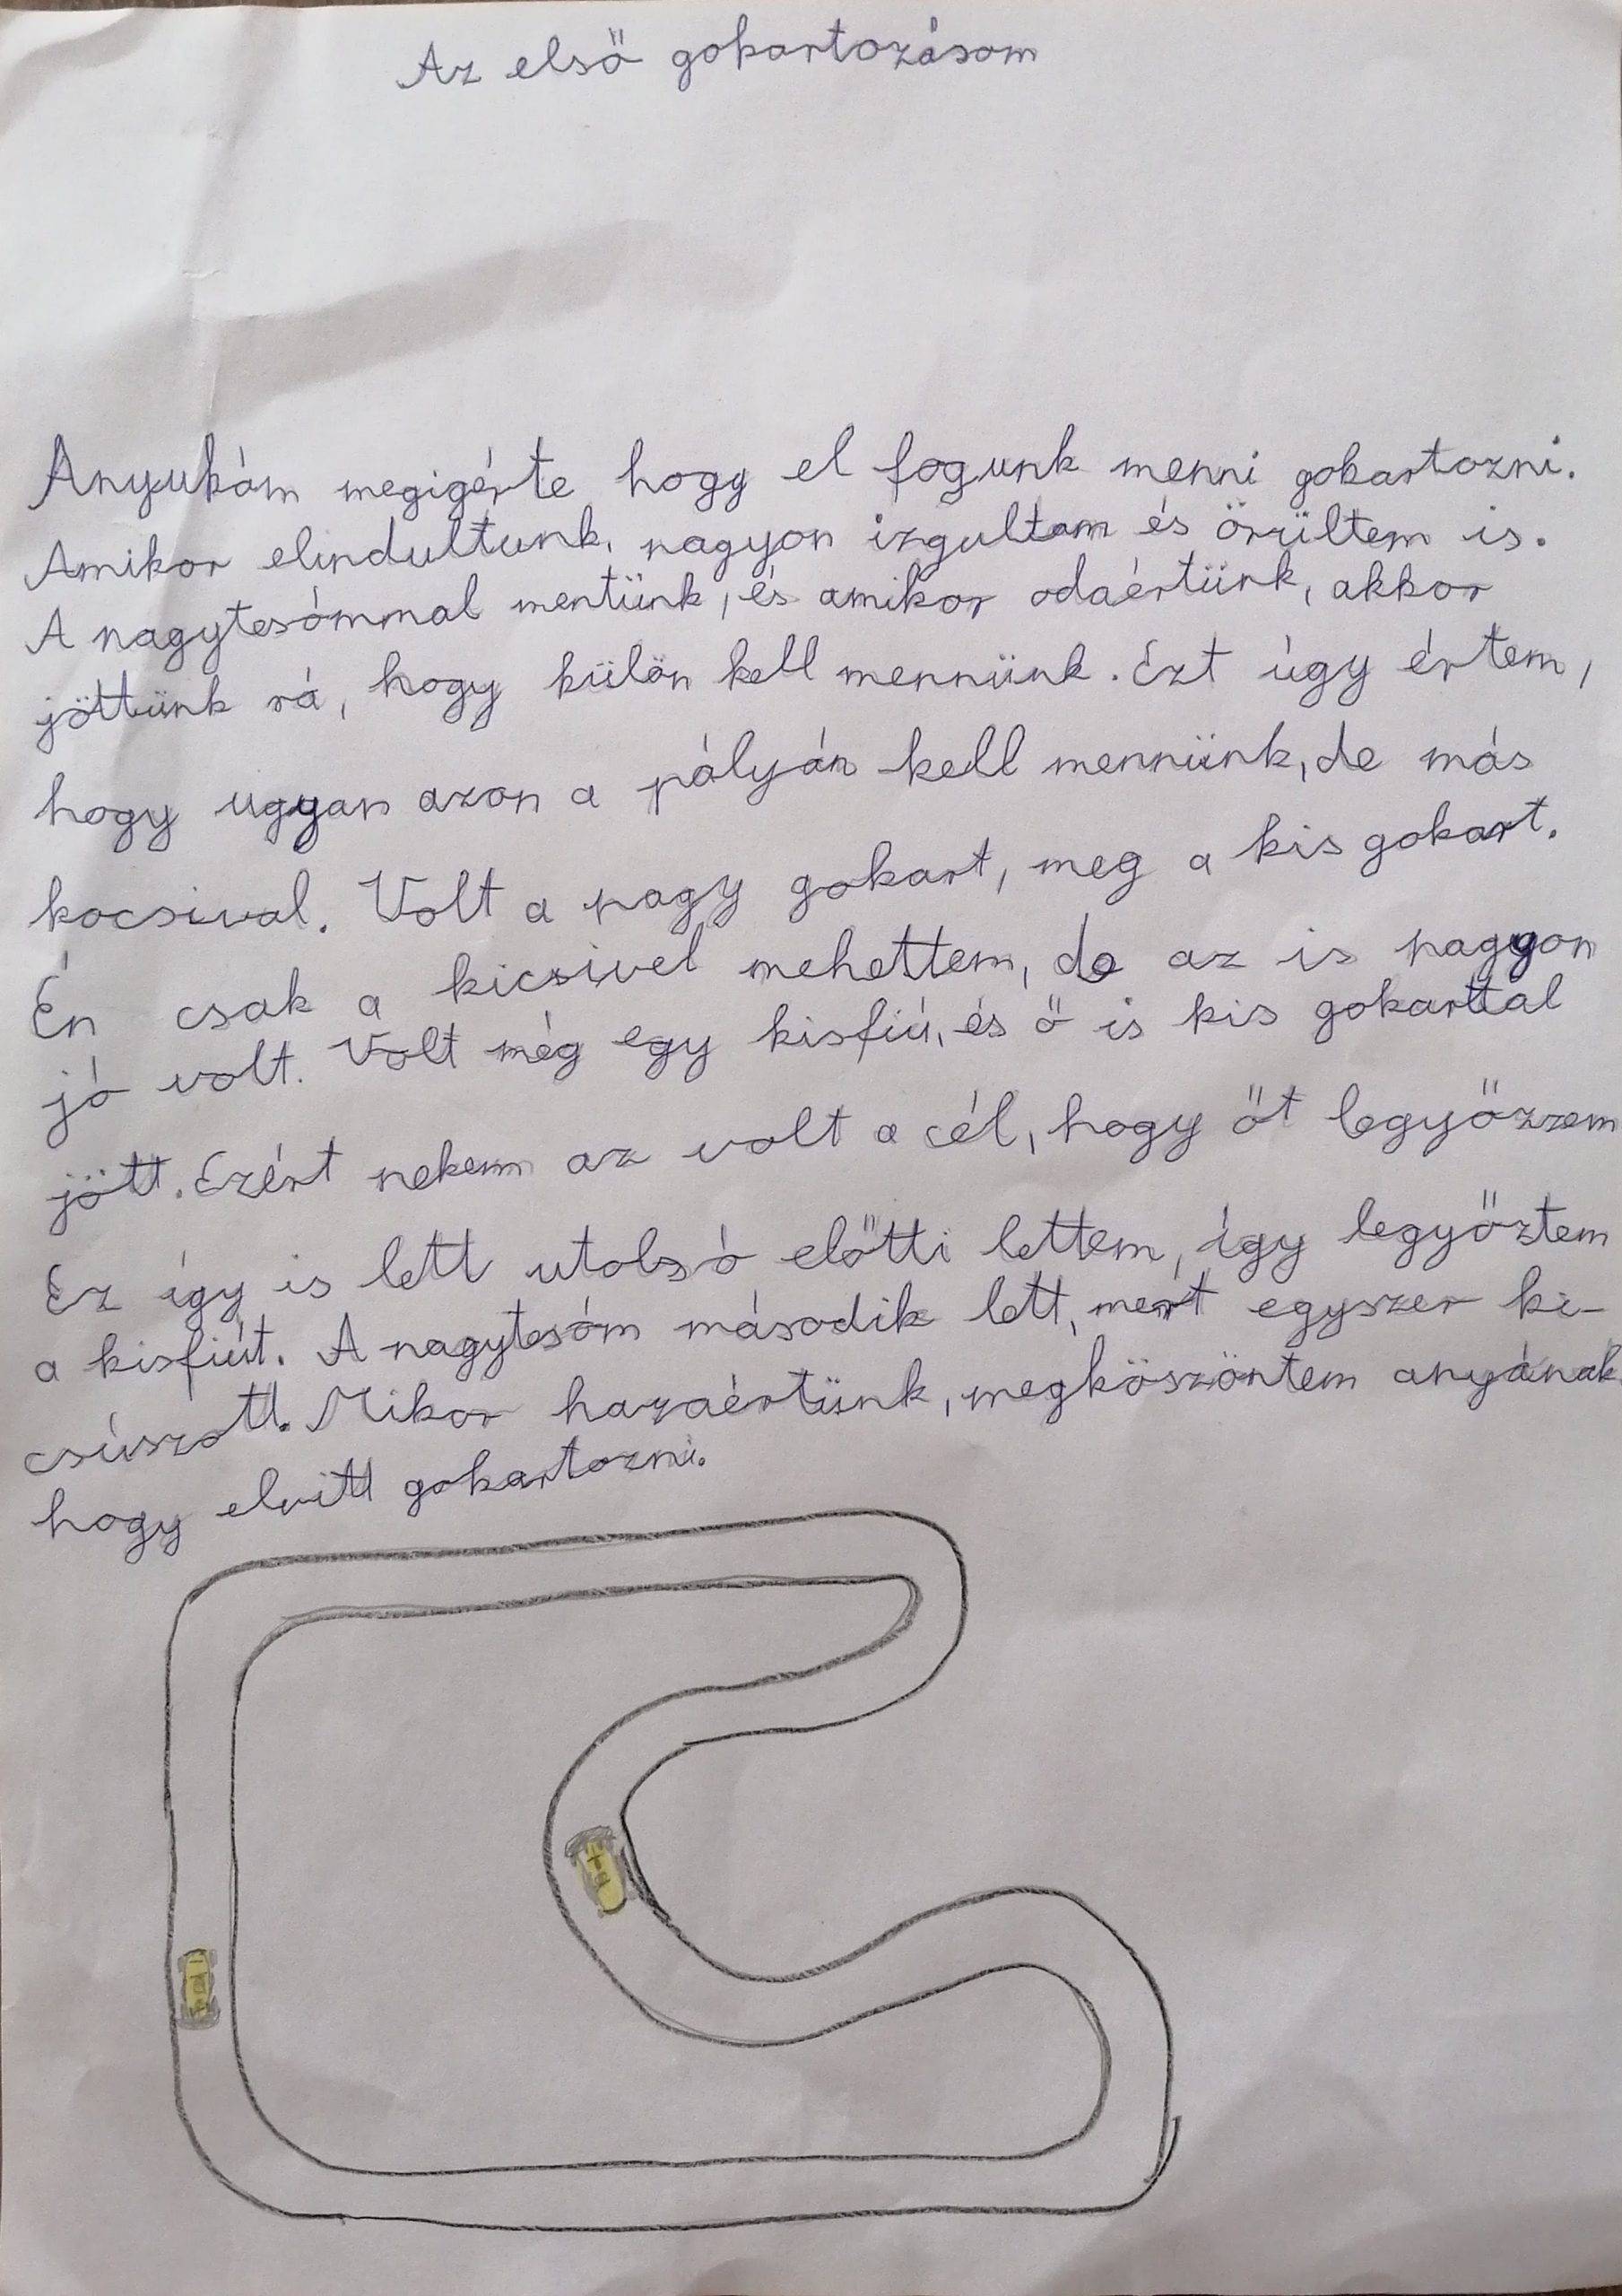 Az első gokartozásom
Anyukám megigérte hogy el fogunk menni gokartozni.
Amikor elindultunk, nagyon izgultam és örültem is.
A nagytesómmal mentünk, és amikor odaértünk, akkor
jöttünk rá, hogy külön kell mennünk. Ezt úgy értem,
hogy ugyan azon a pályán kell mennünk, de más
kocsival. Volt a nagy gokart, meg a kis gokart.
Én csak a kicsivel mehettem, de az is nagyon
jó volt. Volt még egy kisfiú, és ő is kis gokarttal
jött. Ezért nekem az volt a cél, hogy őt legyőzzem
Ez így is lett utolsó előtti lettem, így legyőztem
a kisfiút. A nagytesóm második lett, mert egyszer ki-
csúszott. Mikor hazaértünk, megköszöntem anyának
hogy elvitt gokartozni.